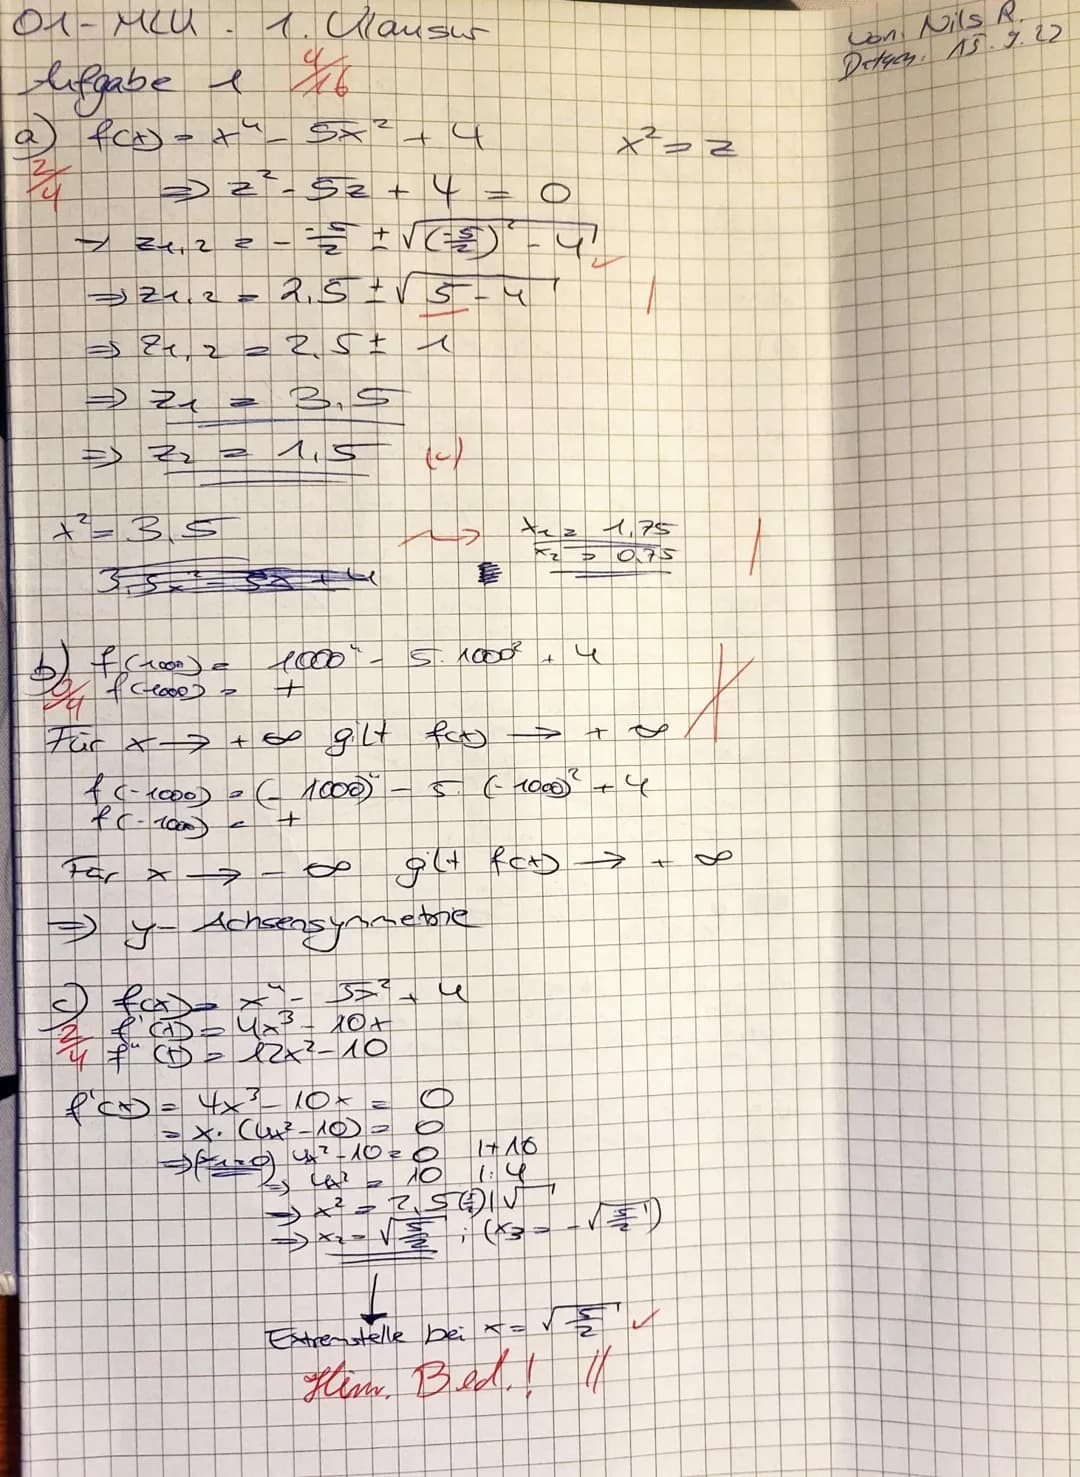 01-MLU. 1. Klausur
von: Nils R.
Datum: 15.9.22
Aufgabe 1 4/16
a) f(x) = x⁴ - 5x² + 4 x² = z
2/4
⇒ z² - 5z + 4 = 0
→ z₁,₂ = - -5/2 ± √((-5/2)² - 4) ✓
⇒ z₁,₂ = 2,5 ± √(5-4) |
⇒ z₁,₂ = 2,5 ± 1
⇒ z₁ = 3,5
⇒ z₂ = 1,5 (✓)
x² = 3,5 x₁ = 1,75 |
x₂ = 0,75
3,5x² - 5x + 4
b) f(1000) = 1000⁴ - 5·1000² + 4
0/4 f(1000) = +
Für x → + ∞ gilt f(x) → + ∞
f(-1000) = (-1000)⁴ - 5·(-1000)² + 4
f(-1000) = +
Für x → - ∞ gilt f(x) → + ∞
⇒ y- Achsensymmetrie
c) f(x) = x⁴ - 5x² + 4
2/4 f'(x) = 4x³ - 10x
f''(x) = 12x² - 10
f'(x) = 4x³ - 10x = 0
= x·(4x² - 10) = 0
⇒ (x₁=0) 4x² - 10 = 0 |+10
⇒ 4x² = 10 |:4
⇒ x² = 2,5 (±) |√
⇒ x₂ = √(5/2) ; (x₃ = -√(5/2))
Extremstelle bei x = √(5/2) ✓
Hinr. Bed.! ||